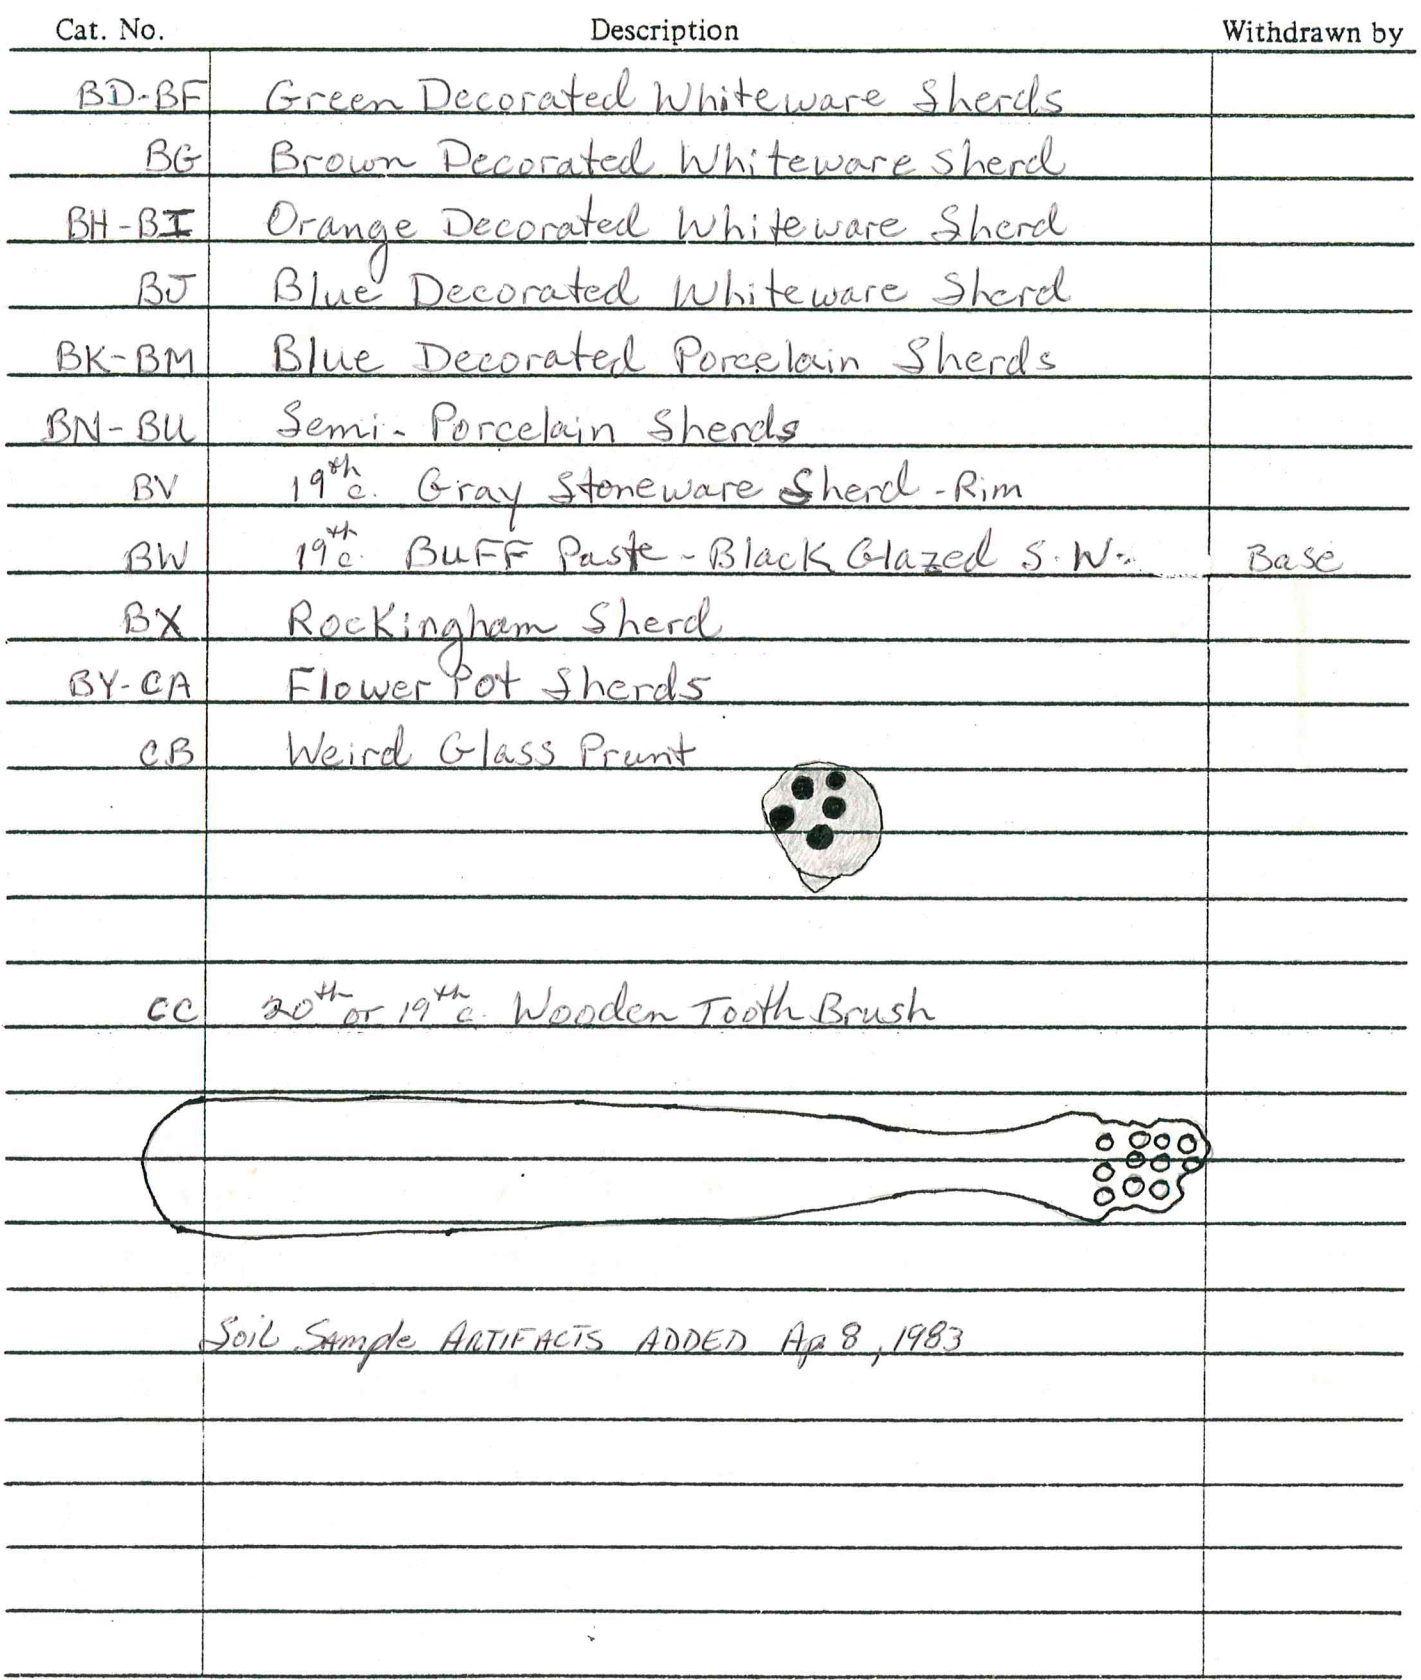 Cat. No. Description Withdrawn by
BD-BF Green Decorated Whiteware Sherds
BG Brown Decorated Whiteware Sherd
BH-BI Orange Decorated Whiteware Sherd
BJ Blue Decorated Whiteware Sherd
BK-BM Blue Decorated Porcelain Sherds
BN-BU Semi-Porcelain Sherds
BV 19th c. Gray Stoneware Sherd-Rim
BW 19th c. BUFF Paste-Black Glazed S.W. Base
BX Rockingham Sherd
BY-CA Flower Pot Sherds
CB Weird Glass Prunt
CC 20th or 19th c. Wooden Tooth Brush
Soil Sample ARTIFACTS ADDED Ap 8, 1983